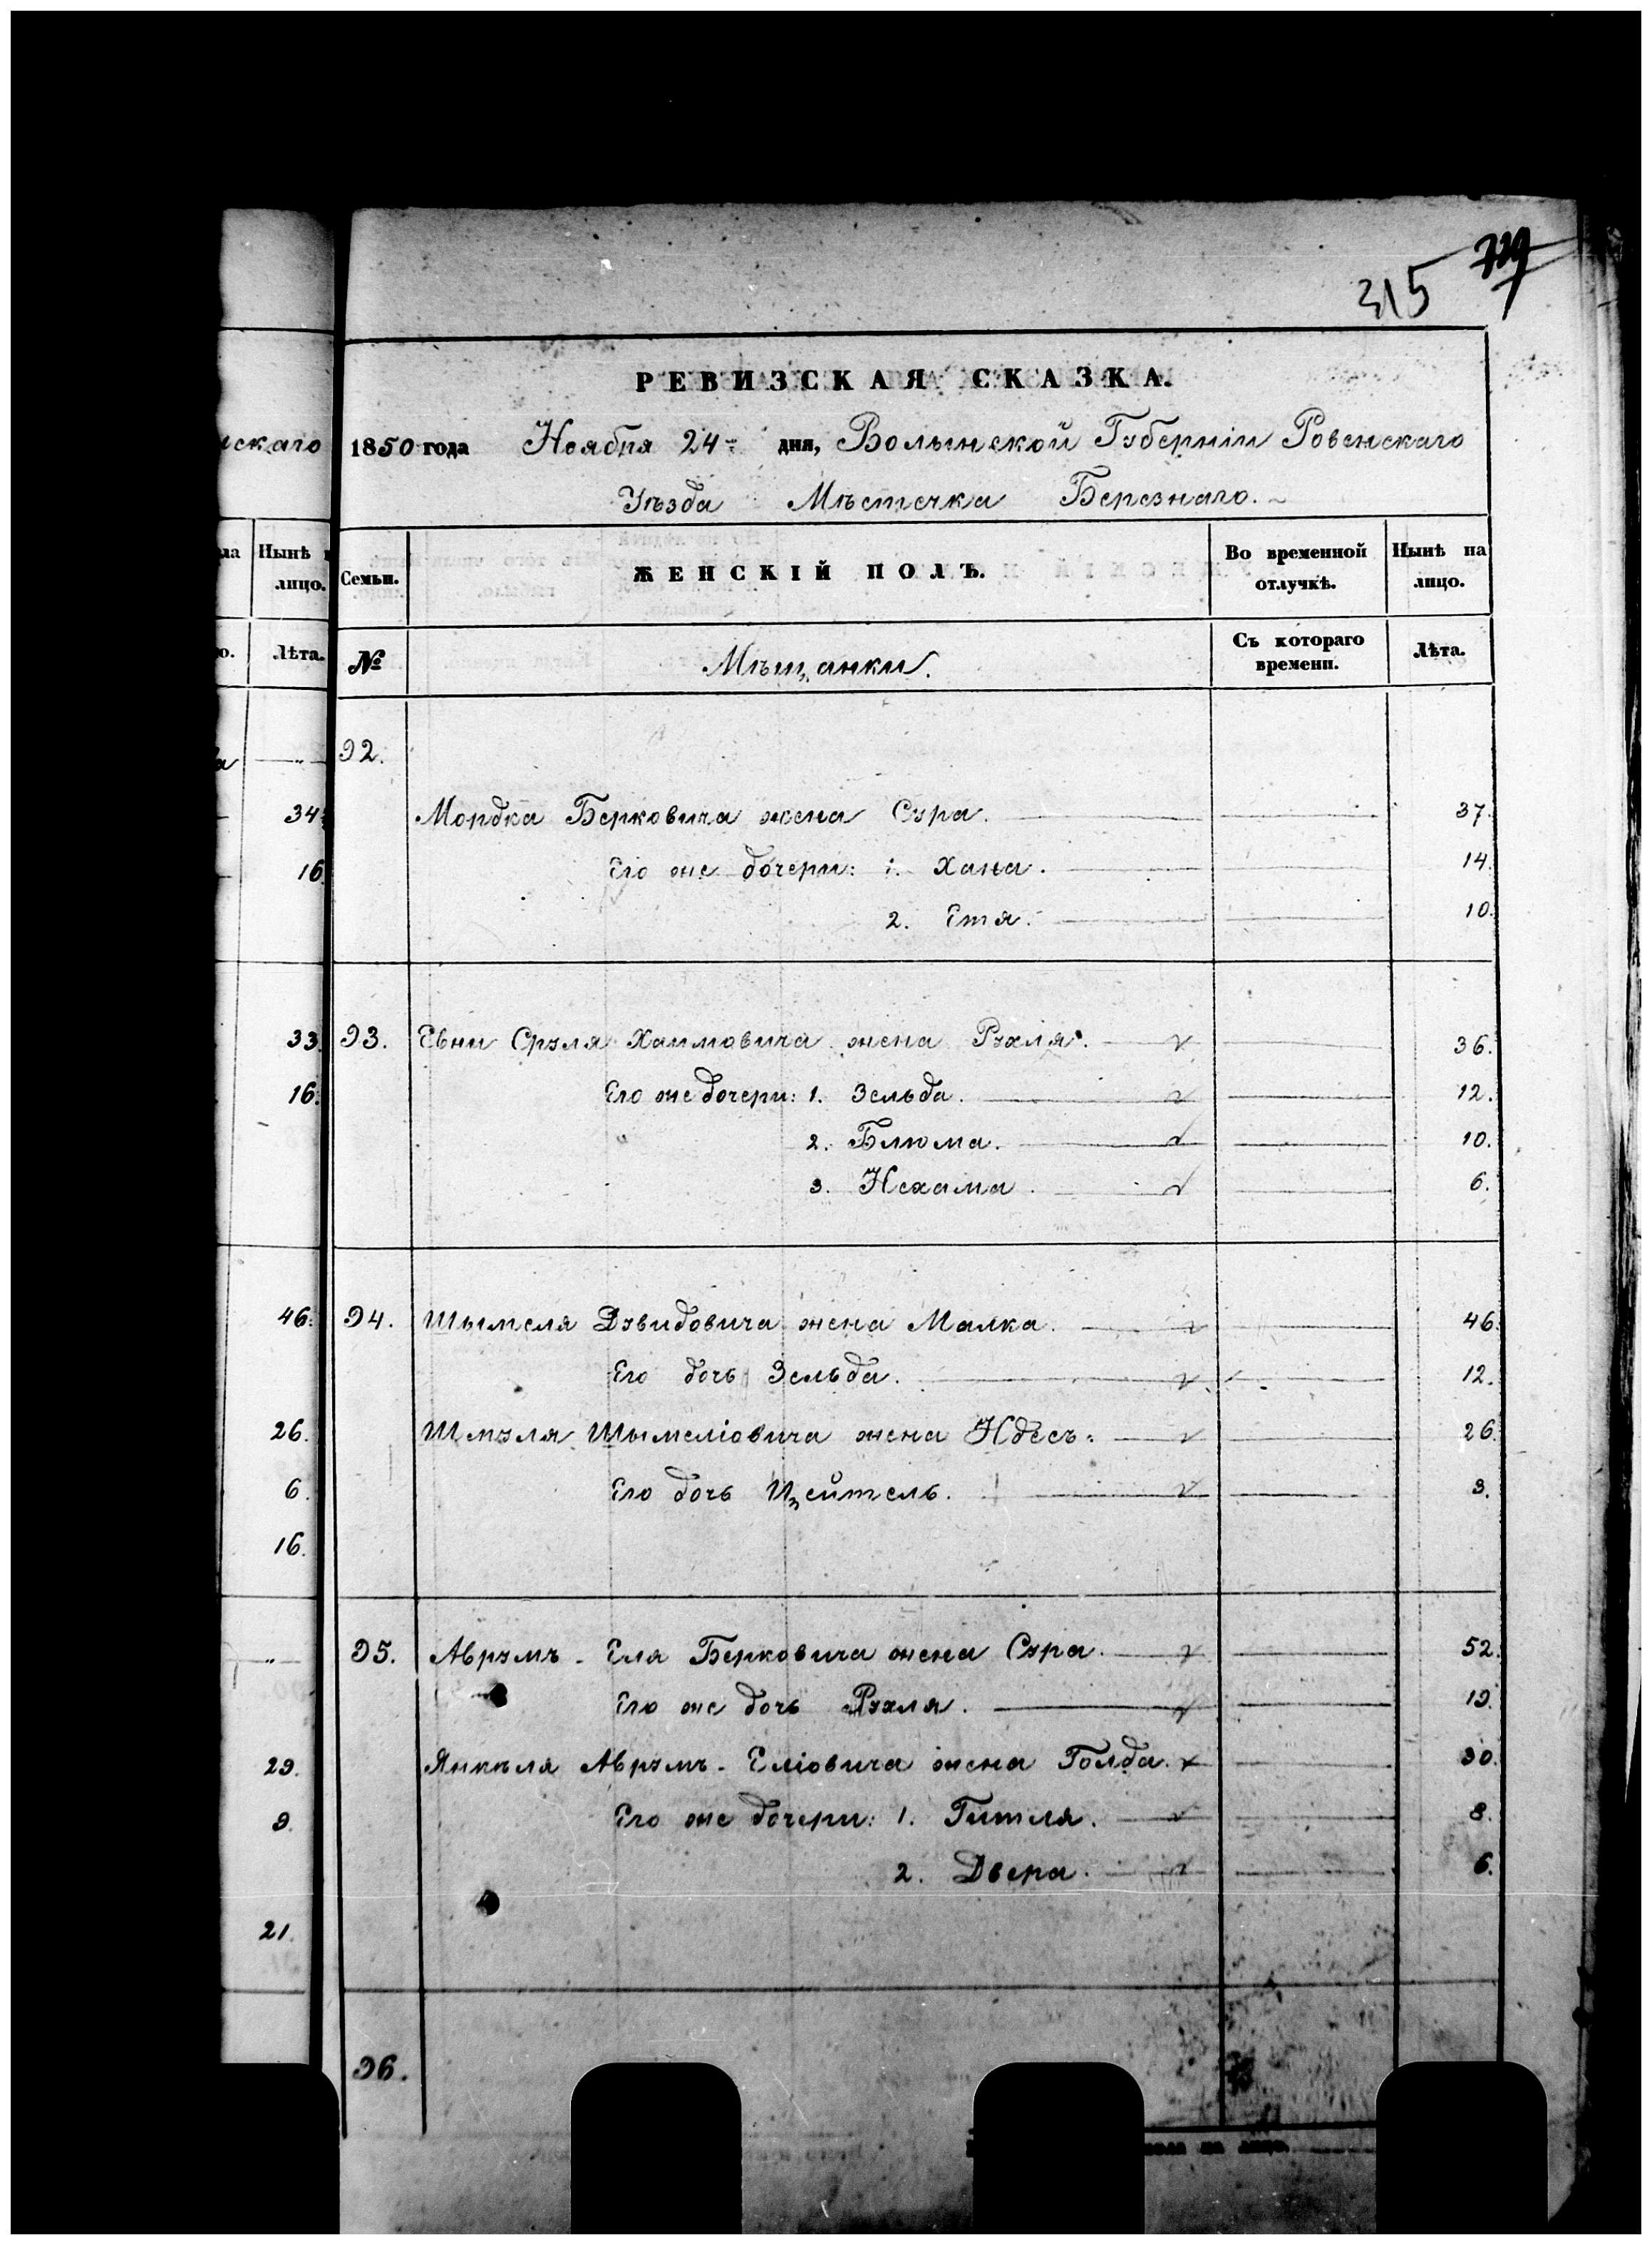 315
РЕВИЗСКАЯ СКАЗКА.
скаго
1850 года Ноября 24 дня, Волынской Губерніи Ровенскаго
Уѣзда Мѣстечка Березнаго.
Нынѣ
лицо.
Семьи.
ЖЕНСКІЙ ПОЛЪ.
Во временной
отлучкѣ.
Нынѣ на
лицо.
Лѣта.
№
Мѣщанки.
Съ котораго
времени.
Лѣта.
92.
34. Мордка Берковича жена Сура. 37.
16. Его же дочери: 1. Хана. 14.
2. Етя. 10.
33. 93. Евни Сруля Хаимовича жена Рухля. 36.
16. Его же дочери: 1. Зельда. 12.
2. Блюма. 10.
3. Нехама. 6.
46. 94. Шымеля Дувидовича жена Малка. 46.
Его дочь Зельда. 12.
26. Шмуля Шымеліовича жена Идесъ. 26.
6. Его дочь Цейтель. 3.
16.
95. Аврумъ-Еля Берковича жена Сура. 52.
Его же дочь Рухля. 19.
29. Янкеля Аврумъ-Еліовича жена Голда. 30.
9. Его же дочери: 1. Гитля. 8.
2. Двера. 6.
21.
96.
на лицо.